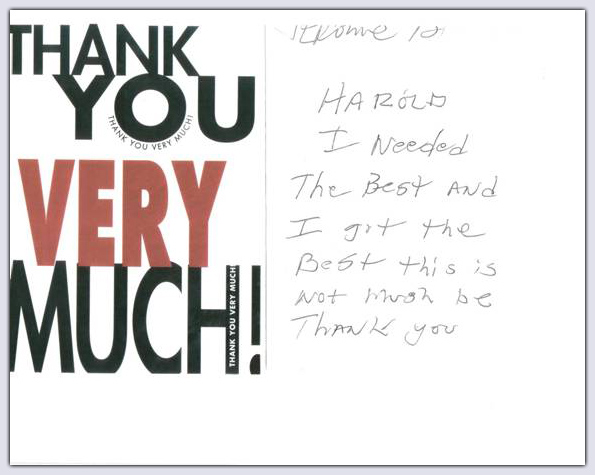 THANK
YOU
THANK YOU VERY MUCH!
VERY
MUCH!
THANK YOU VERY MUCH!
HAROLD
I Needed
The Best And
I got the
Best this is
not much be
Thank you